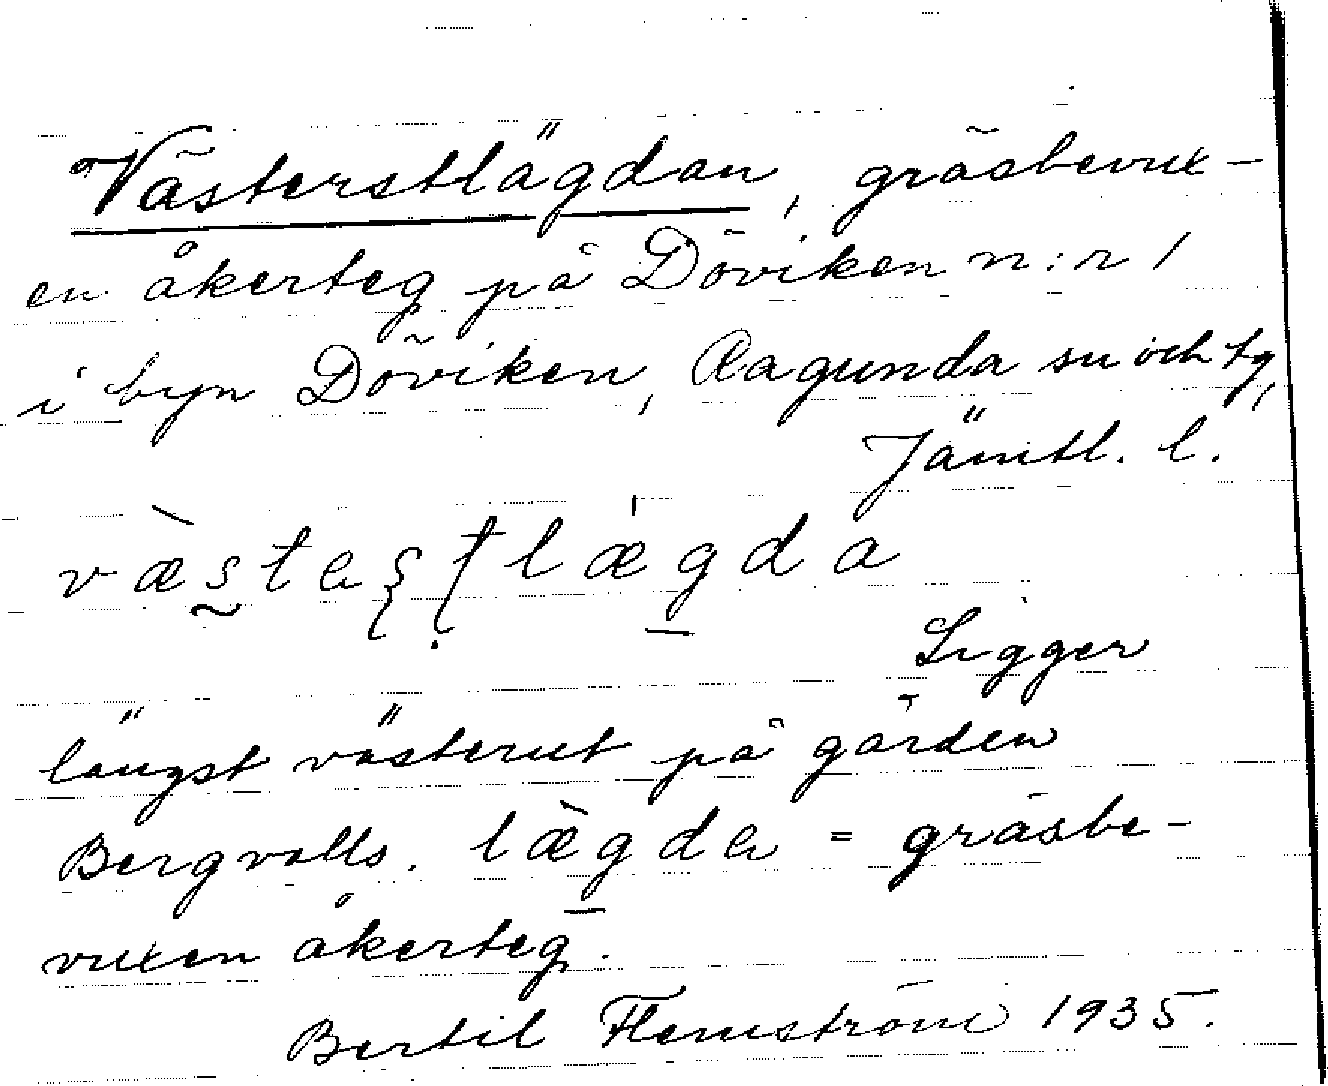 Västerstlägdan, gräsbevux-
en åkerteg på Döviken n:r 1
i byn Döviken, Ragunda sn och tg,
Jämtl. l.
væsteʂʈlægda
Ligger
längst västerut på gården
Bergvalls. lægda = gräsbe-
vuxen åkerteg.
Bertil Flemström 1935.